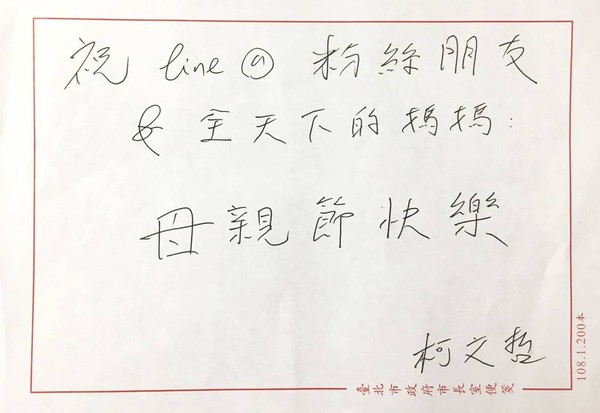 祝 line @ 粉絲朋友
& 全天下的媽媽：
母親節快樂
柯文哲
臺北市政府市長室便箋
108.1.200本